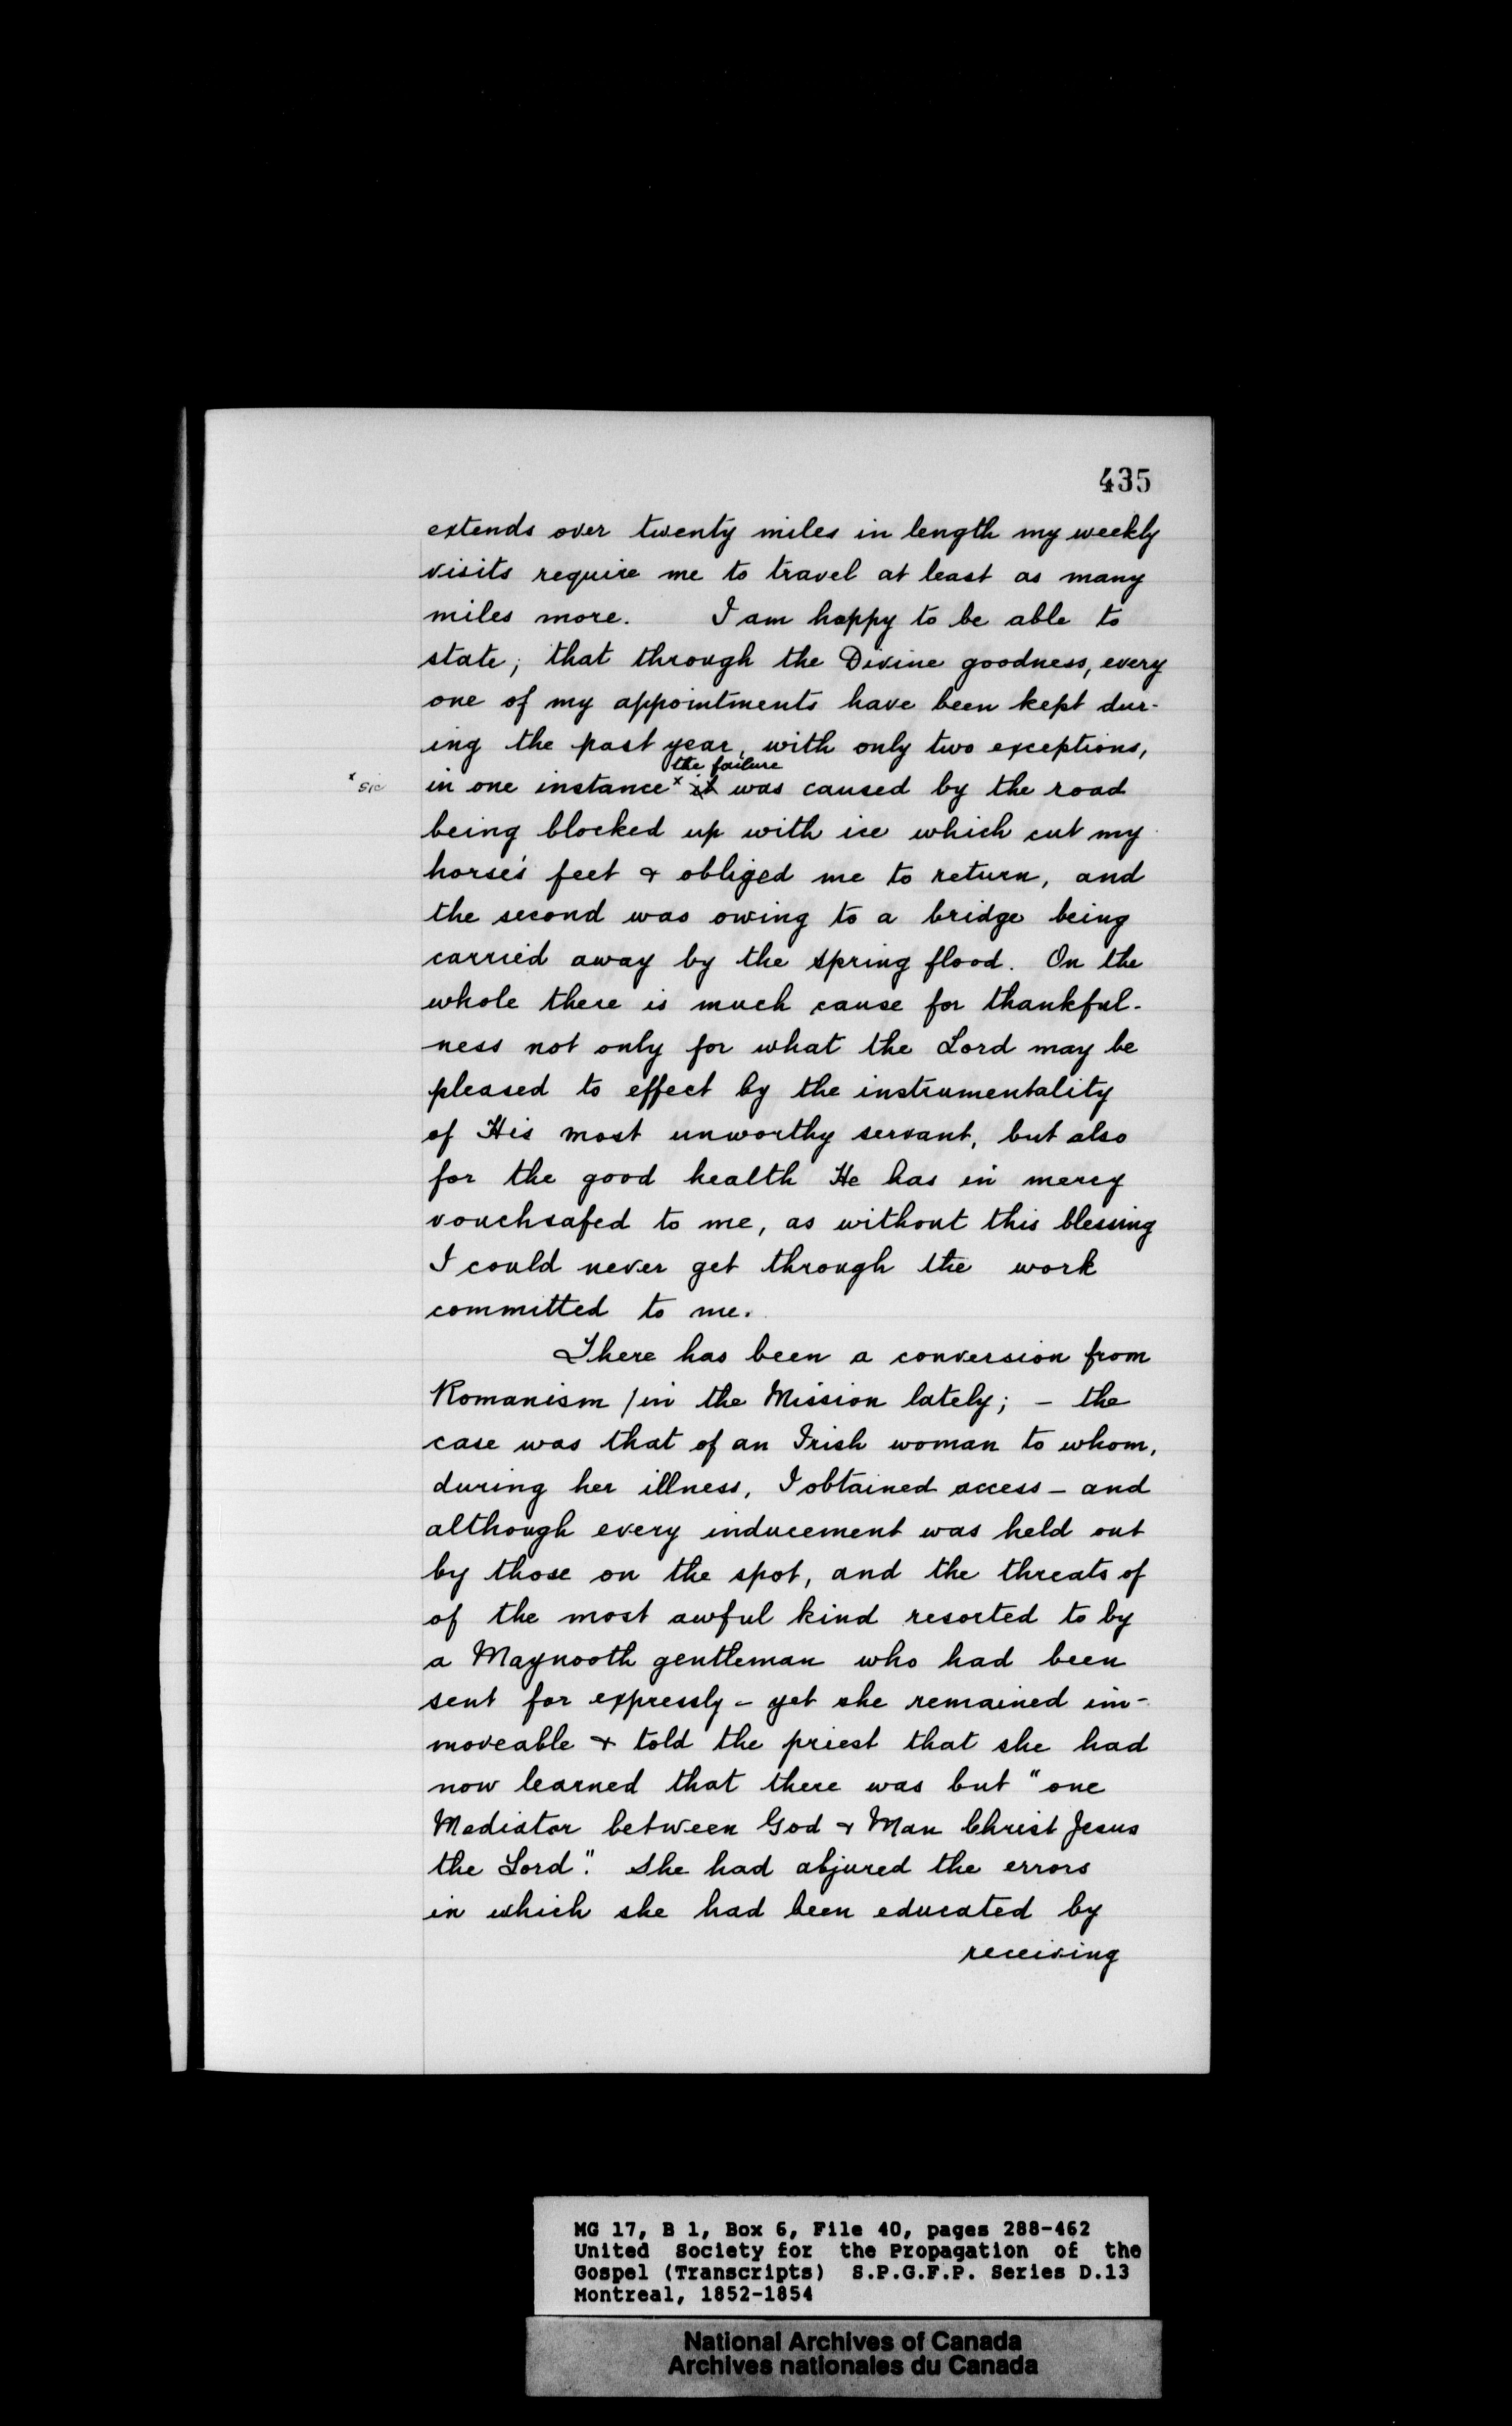 435
extends over twenty miles in length my weekly
visits require me to travel at least as many
miles more. I am happy to be able to
state, that through the Divine goodness, every
one of my appointments have been kept dur-
ing the past year, with only two exceptions,
the failure
x sic in one instance x it was caused by the road
being blocked up with ice which cut my
horse's feet & obliged me to return, and
the second was owing to a bridge being
carried away by the spring flood. On the
whole there is much cause for thankful-
ness not only for what the Lord may be
pleased to effect by the instrumentality
of His most unworthy servant, but also
for the good health He has in mercy
vouchsafed to me, as without this blessing
I could never get through the work
committed to me.
There has been a conversion from
Romanism /in the Mission lately; - the
case was that of an Irish woman to whom,
during her illness, I obtained access - and
although every inducement was held out
by those on the spot, and the threats of
of the most awful kind resorted to by
a Maynooth gentleman who had been
sent for expressly - yet she remained im-
moveable & told the priest that she had
now learned that there was but "one
Mediator between God & Man Christ Jesus
the Lord". She had abjured the errors
in which she had been educated by
receiving
MG 17, B 1, Box 6, File 40, pages 288-462
United Society for the Propagation of the
Gospel (Transcripts) S.P.G.F.P. Series D.13
Montreal, 1852-1854
National Archives of Canada
Archives nationales du Canada